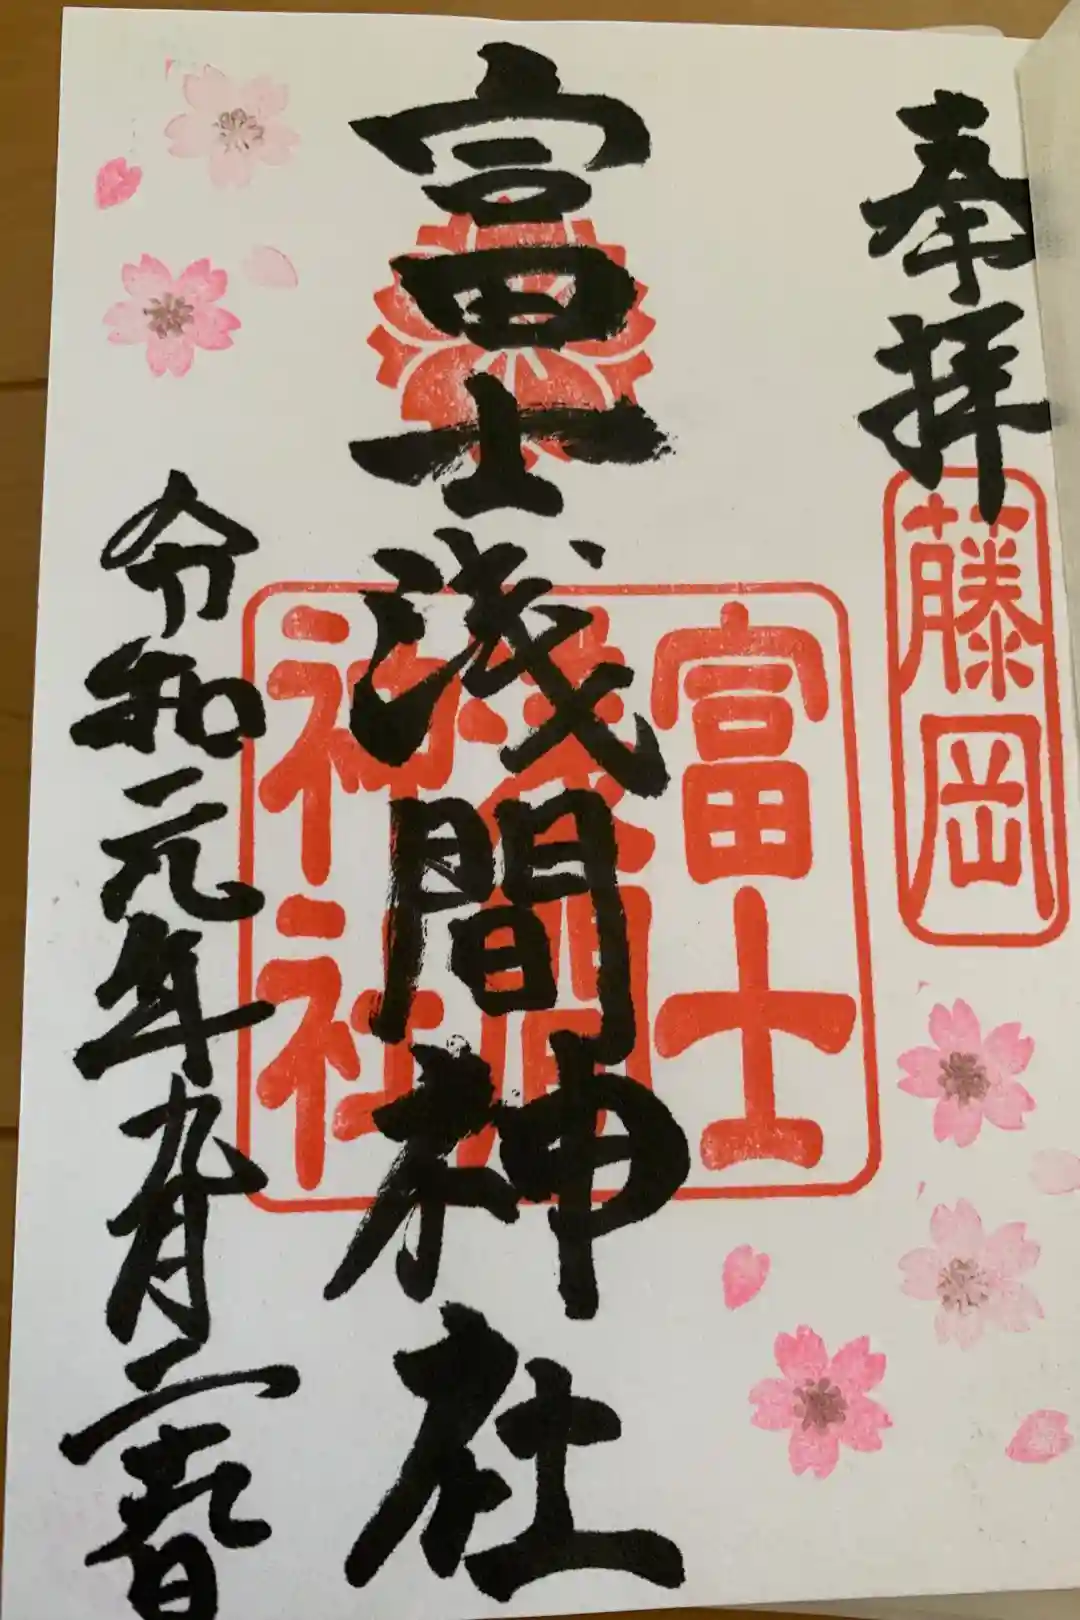 奉拝
藤岡
富士浅間神社
富士
淺間
神社
令和元年九月二日